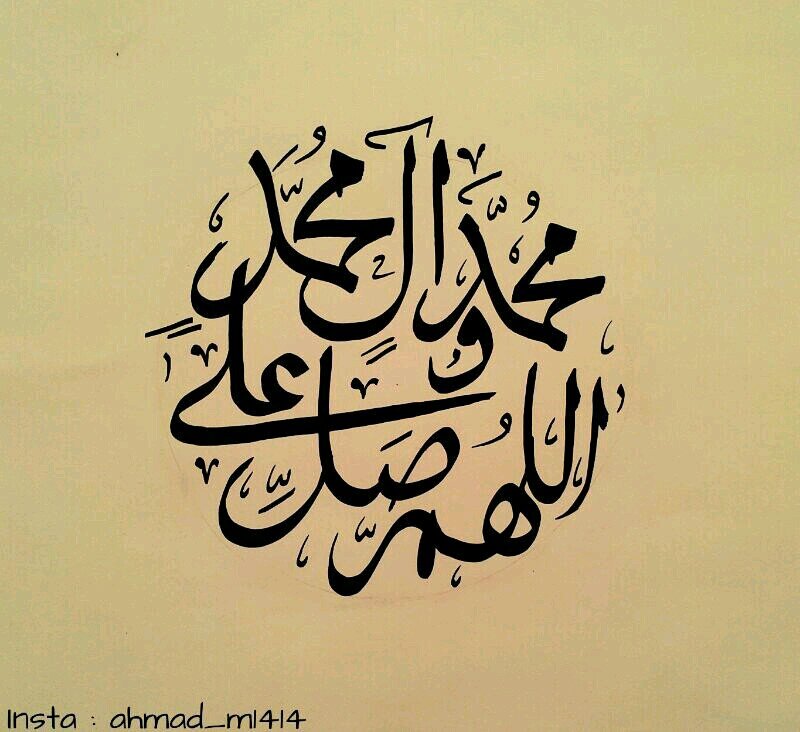 اللهم صل على
محمد وآل محمد
Insta : ahmad_m1414